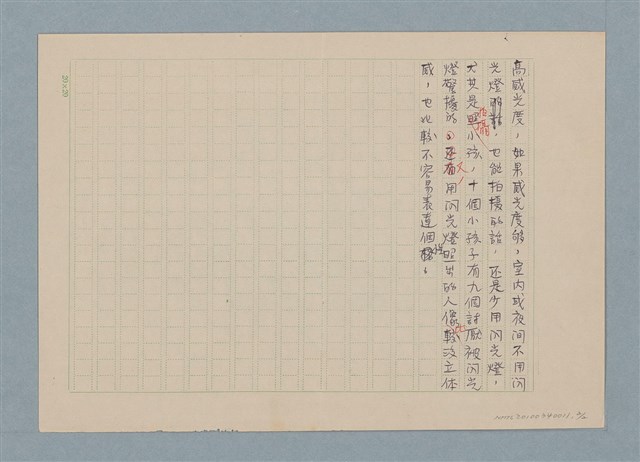 高感光度，如果感光度夠，室內或夜間不用閃
光燈，也能拍攝的話，還是少用閃光燈，
尤其是照小孩，十個小孩子有九個討厭被閃光
燈驚擾的。還有用閃光燈照出的人像較沒立体
感，也比較不容易表達個性。
拍攝
又
20×20